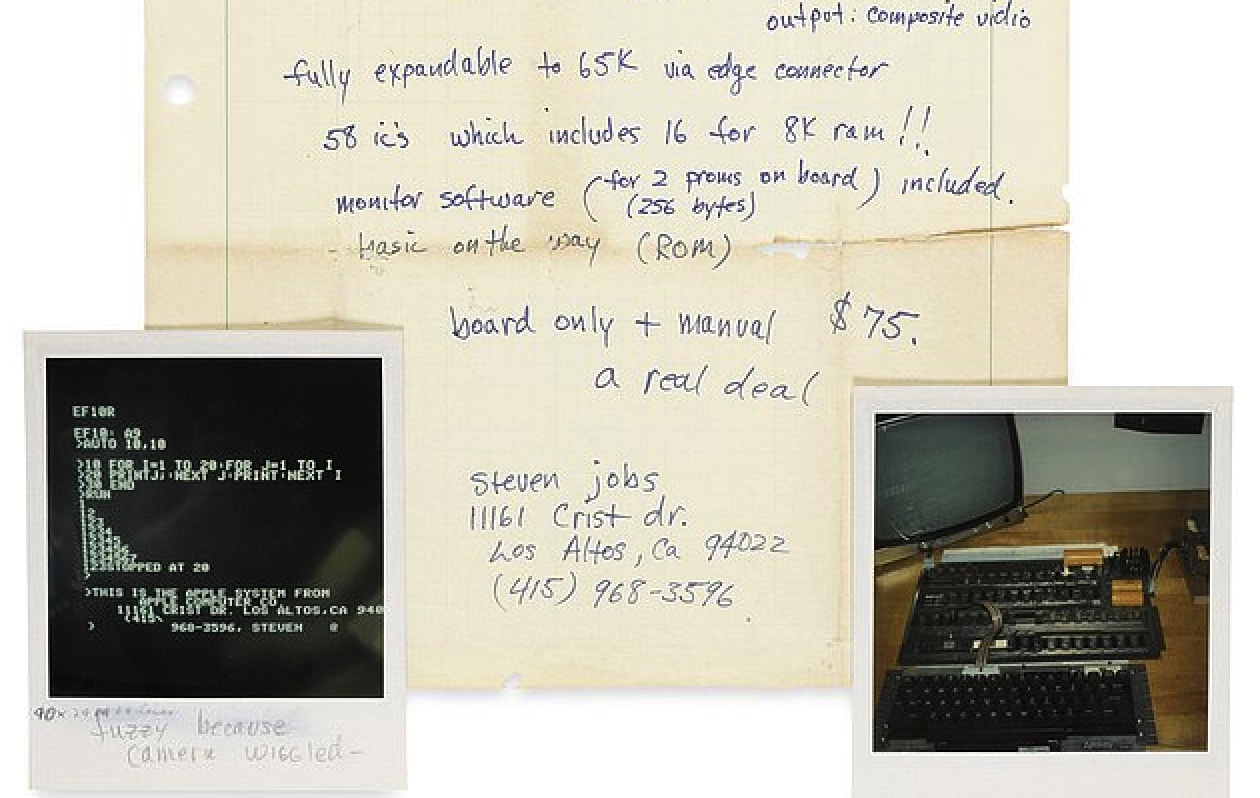 output: composite vidio
fully expandable to 65K via edge connector
58 ic's which includes 16 for 8K ram!!
monitor software (for 2 proms on board) included.
(256 bytes)
- basic on the way (ROM)
board only + manual $75.
a real deal
steven jobs
11161 Crist dr.
Los Altos, Ca 94022
(415) 968-3596
EF10R
EF10: A9
>AUTO 10,10
>10 FOR I=1 TO 20:FOR J=1 TO I
>20 PRINTJ;:NEXT J:PRINT:NEXT I
>30 END
>RUN
STOPPED AT 20
>
>THIS IS THE APPLE SYSTEM FROM
APPLE COMPUTER CO.
11161 CRIST DR. LOS ALTOS,CA 940
(415\
> 968-3596, STEVEN @
fuzzy because
camera wiggled-